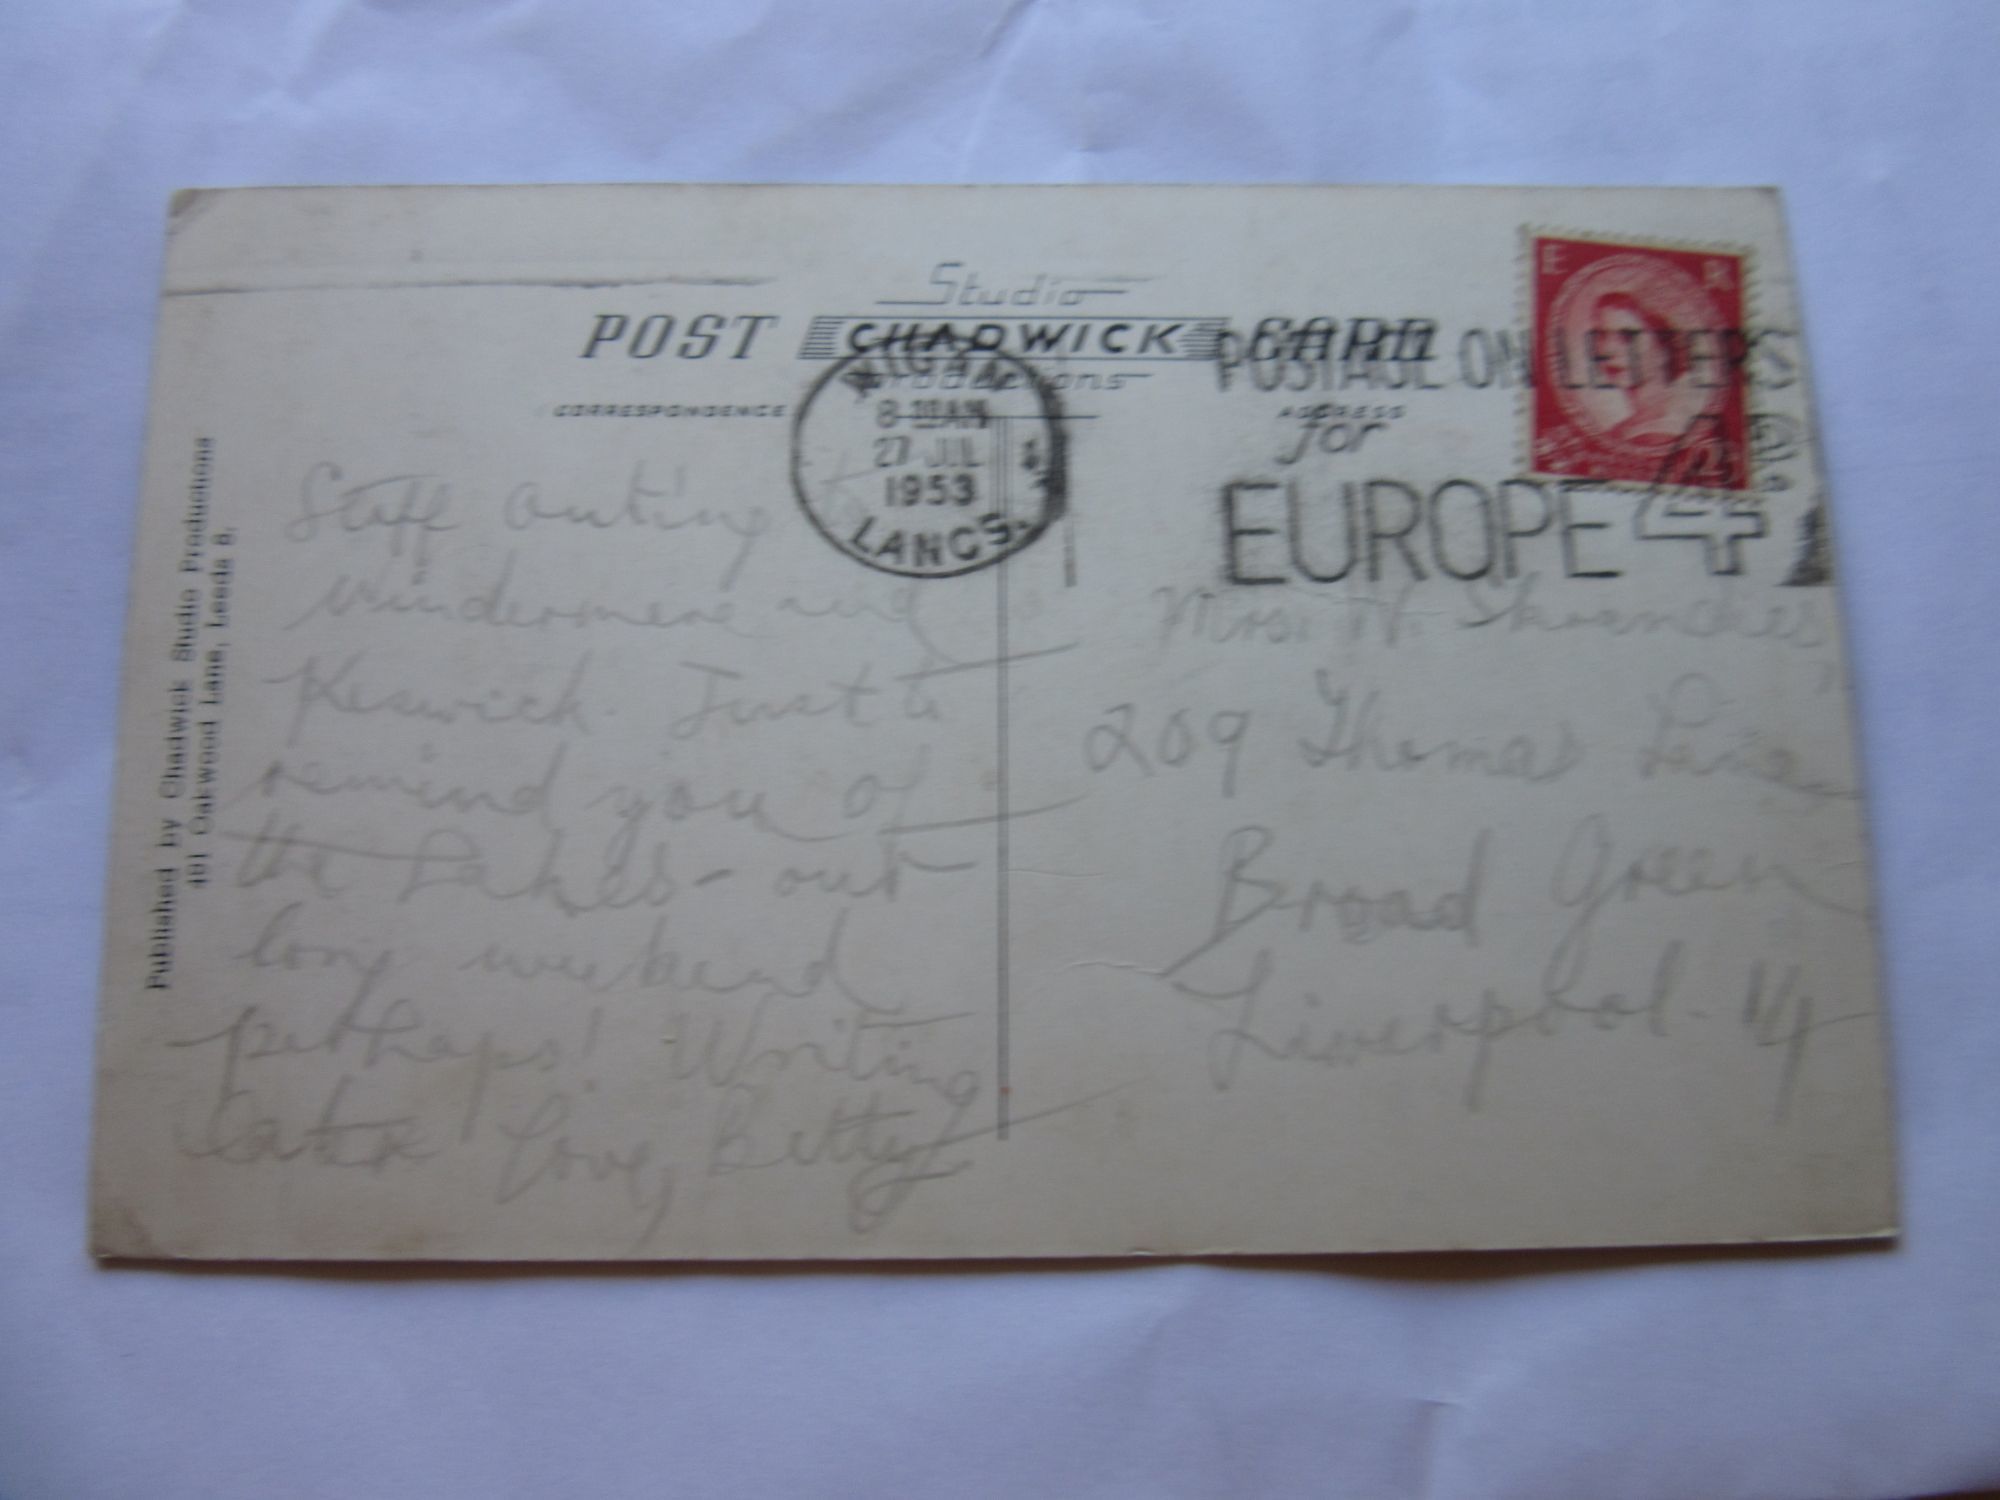 Studio
POST CHADWICK CARD
Productions
CORRESPONDENCE ADDRESS
WIGAN
8-AM
27 JUL
1953
LANCS.
POSTAGE ON LETTERS
for
EUROPE 4D
E R
Published by Chadwick Studio Productions
491 Oakwood Lane, Leeds 8.
Staff outing to
Windermere and
Keswick. Just to
remind you of
the Lakes - our
long weekend
perhaps! Writing
later love, Betty
Mrs. W.
209 Thomas Lane
Broad Green
Liverpool - 14